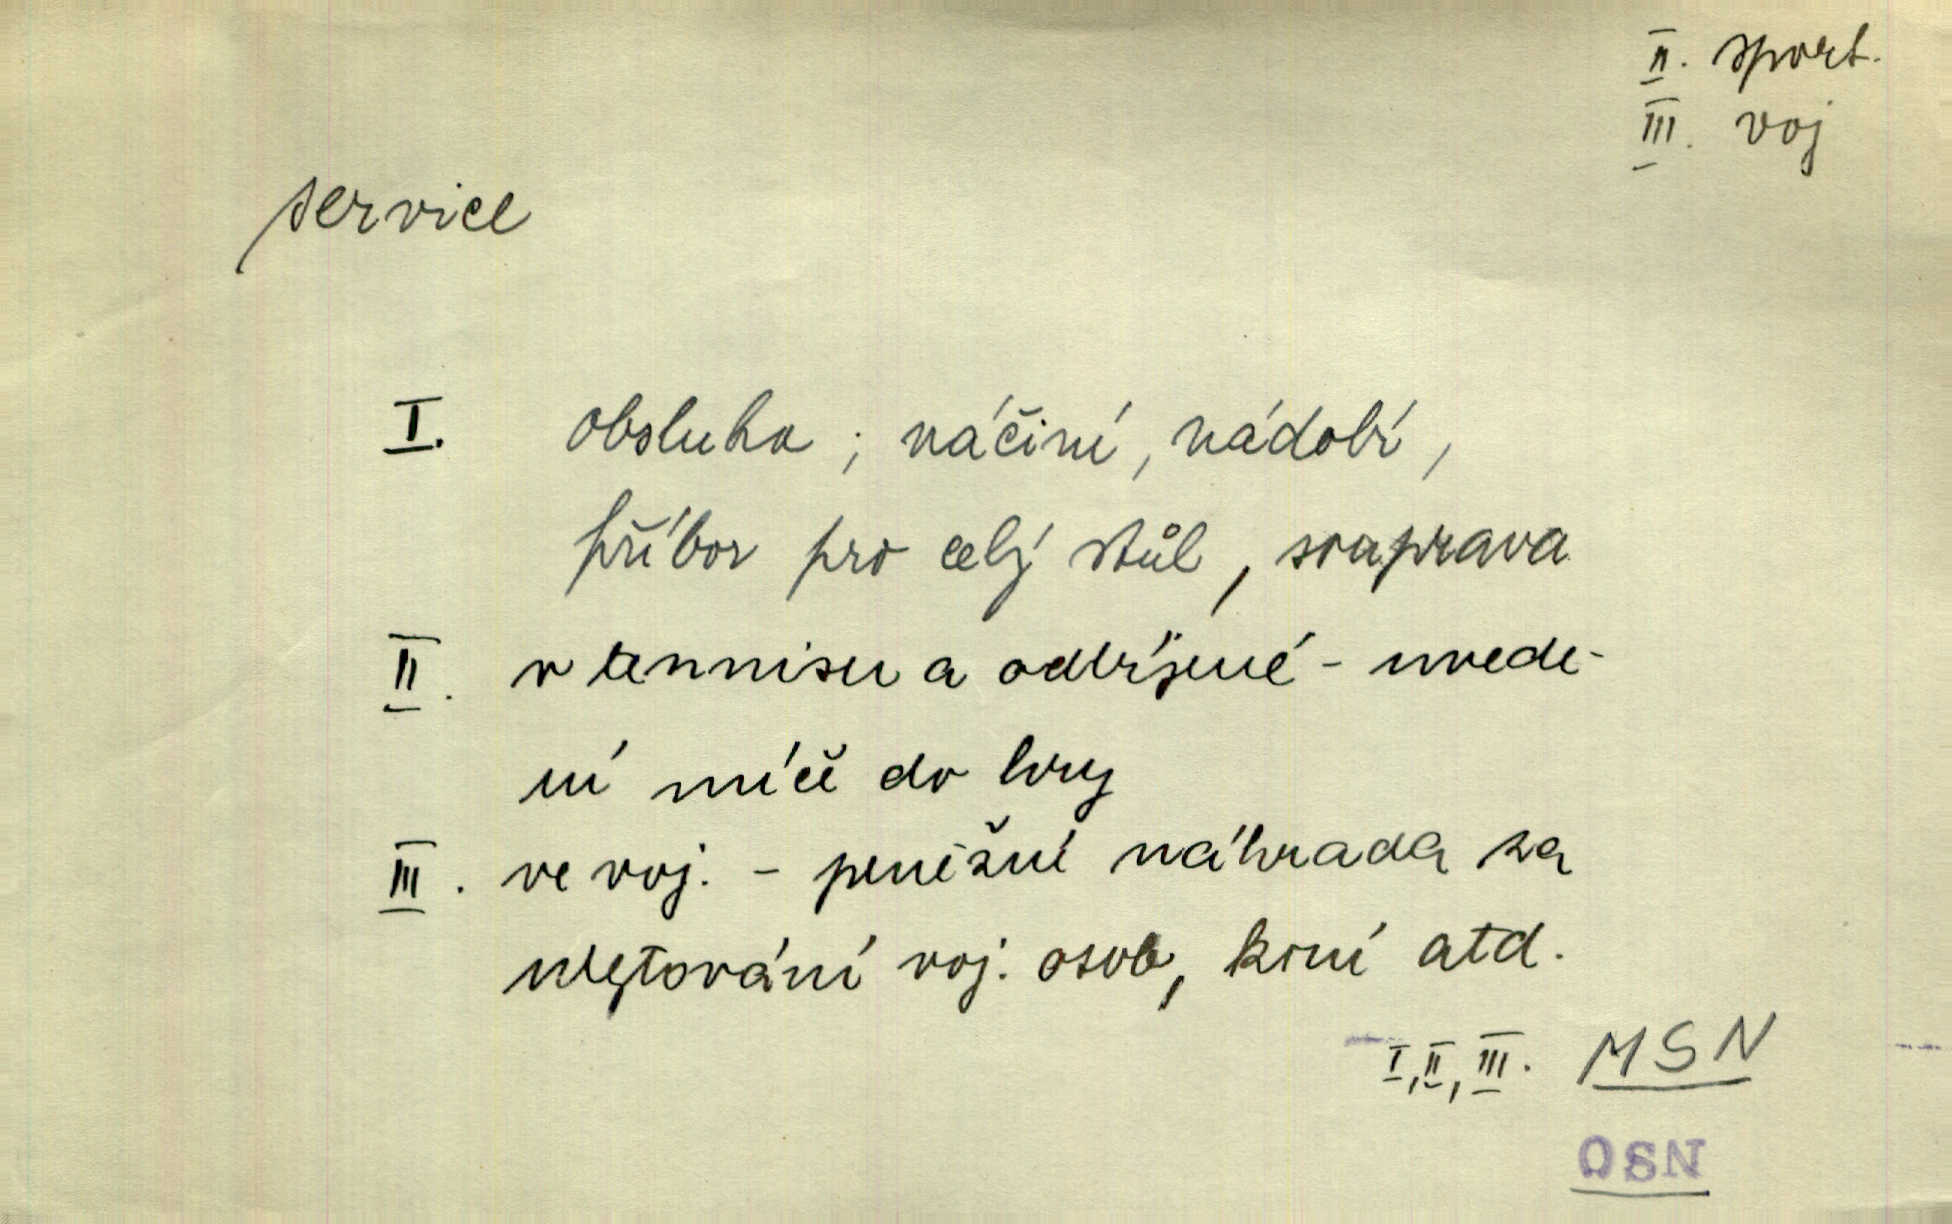 II. sport.
III. voj
service
I. obsluha ; náčiní, nádobí,
příbor pro celý stůl, souprava
II. v tennisu a odbíjené - uvede-
ní míče do hry
III. ve voj. - peněžní náhrada za
ubytování voj. osob, koní atd.
I, II, III. MSN
OSN